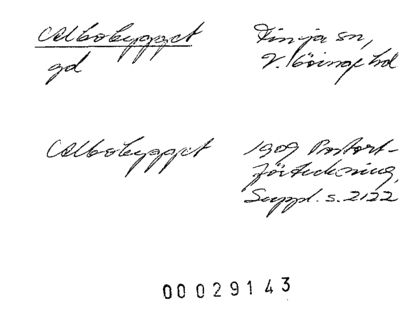 Ålbobygget Finja sn,
gd V. Göinge hd
Ålbobygget 1909 Postort-
förteckning,
Suppl. s. 2122
00029143